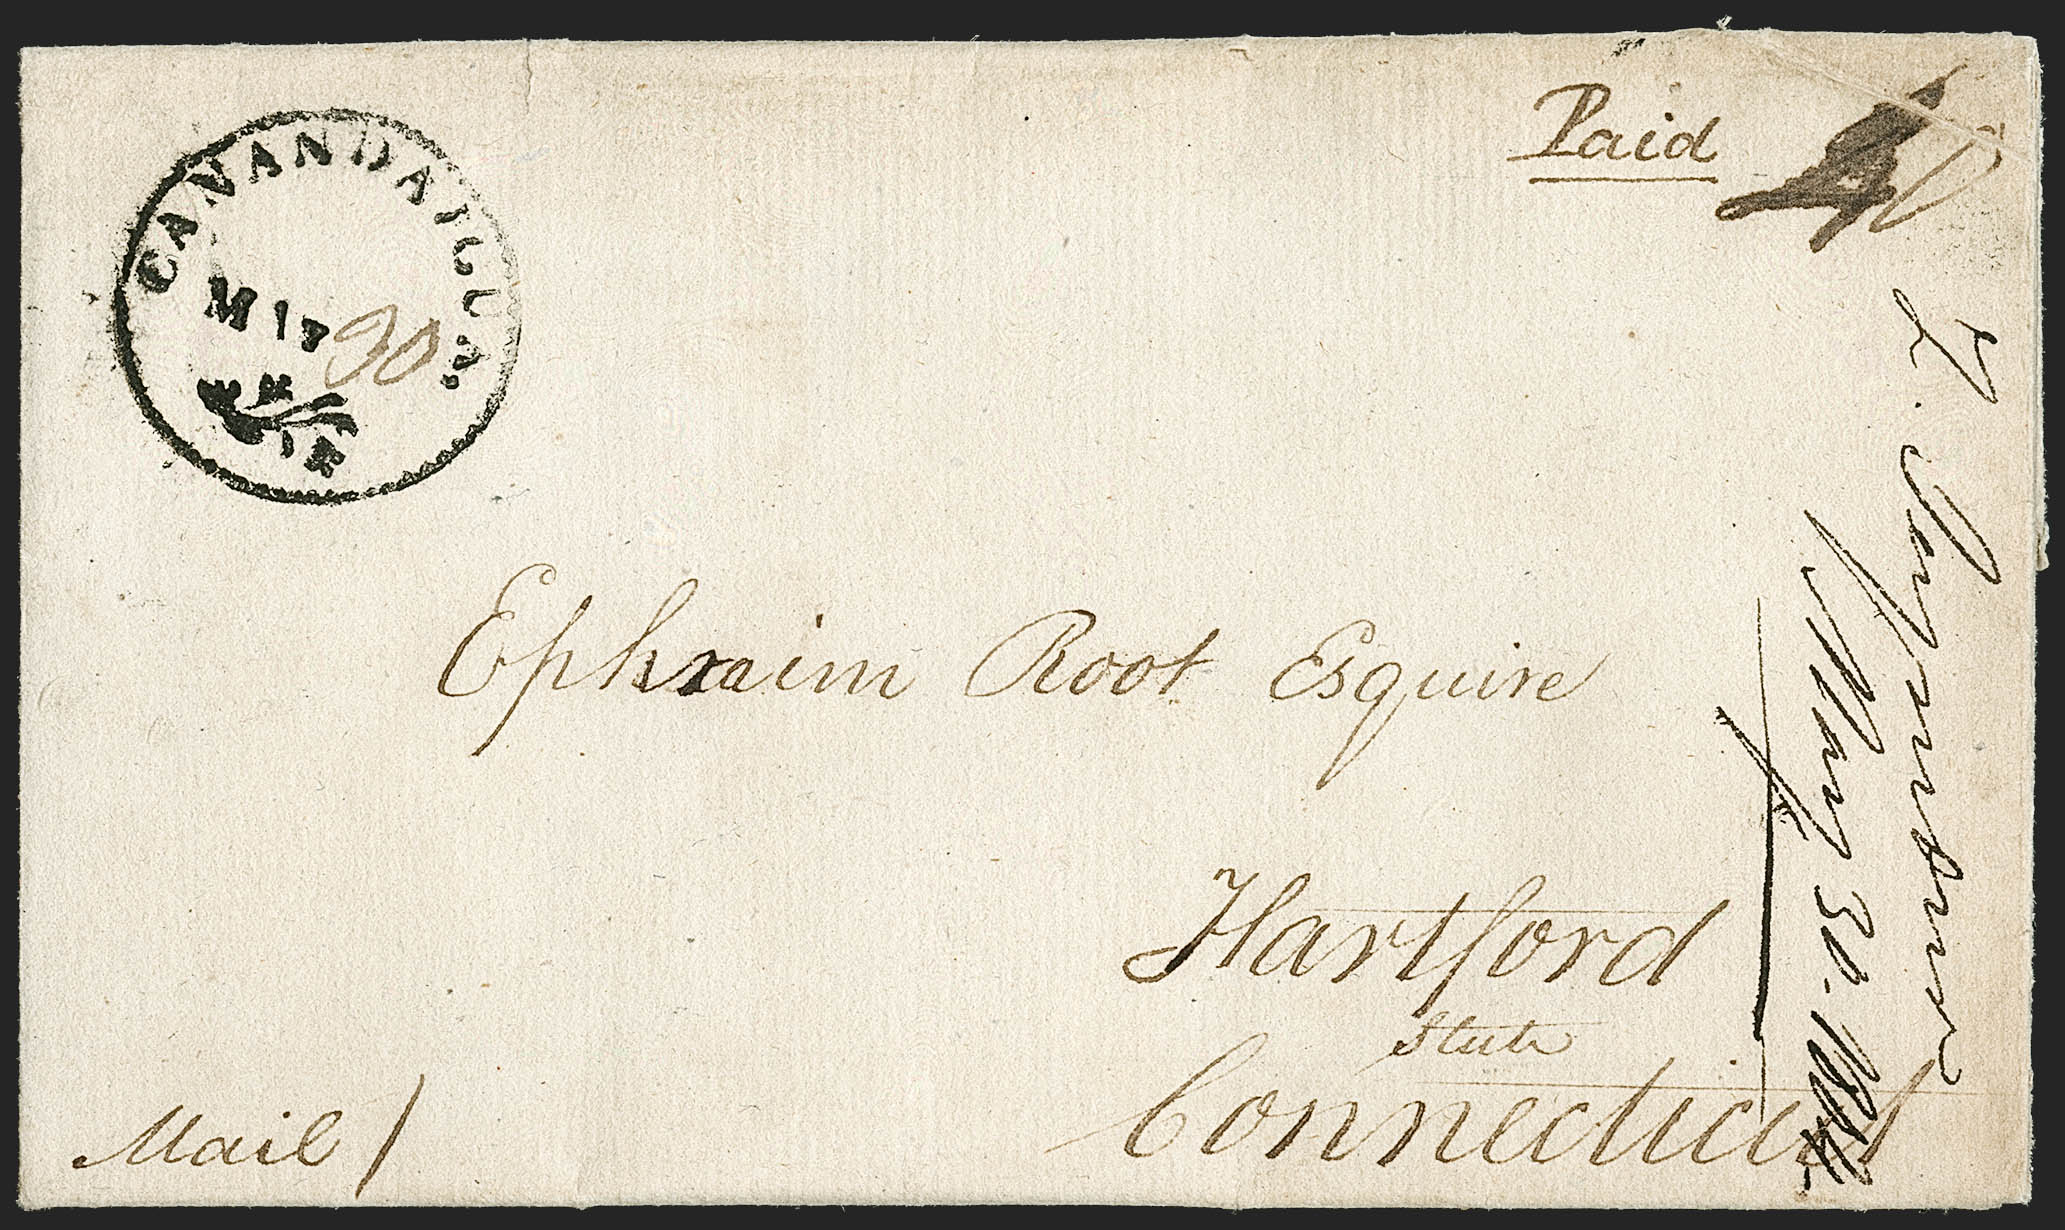 CANANDAIGUA.
M 17
30
Paid
Ephraim Root Esquire
Hartford
State
Connecticut
Mail
May 30. 1804